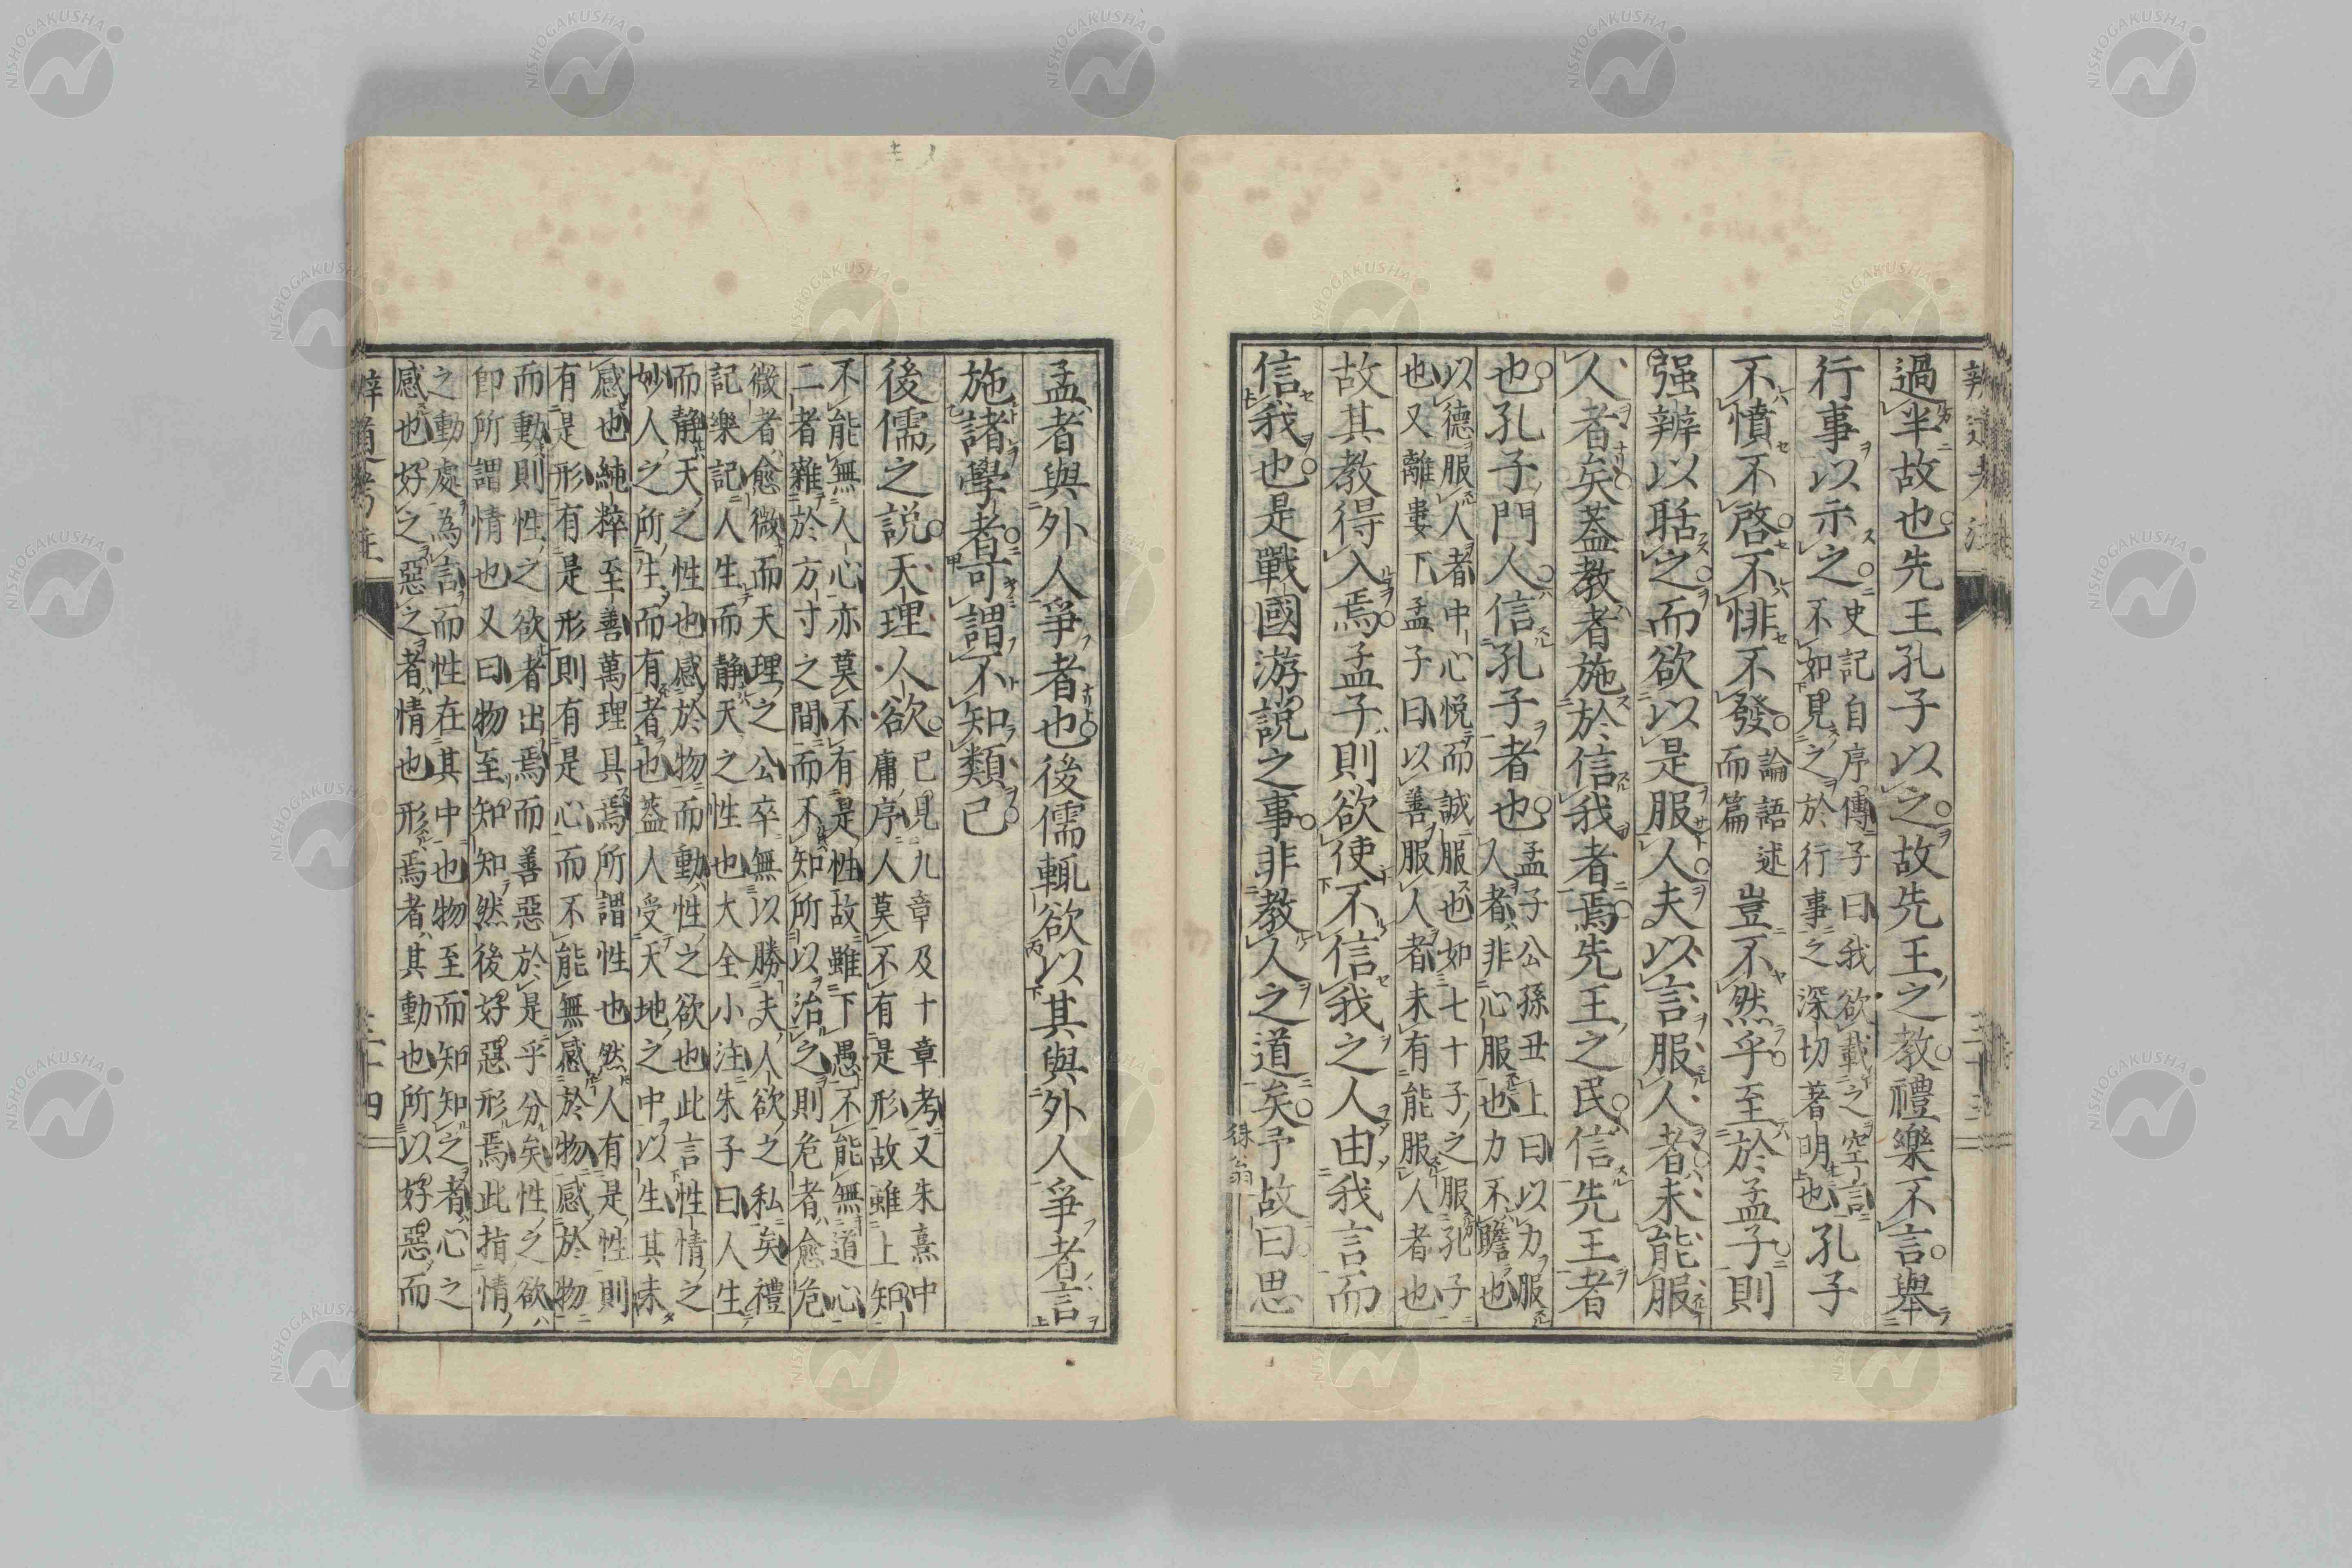 過半故也先王孔子以之故先王之教禮樂不言舉
行事以示之史記自序傳子曰我欲載之空言
不如見之於行事之深切著明也孔子
不憤不啓不悱不發論語述
而篇豈不然乎至於孟子則
强辨以聒之而欲以是服人夫以言服人者未能服
人者矣蓋教者施於信我者焉先王之民信先王者
也孔子門人信孔子者也孟子公孫丑上曰以力服
人者非心服也力不贍也
以德服人者中心悅而誠服也如七十子之服孔子
也又離婁下孟子曰以善服人者未有能服人者也
故其教得入焉孟子則欲使不信我之人由我言而
信我也是戰國游説之事非教人之道矣予故曰思
孟者與外人爭者也後儒輒欲以其與外人爭者言
施諸學者可謂不知類已
後儒之説天理人欲已見九章及十章考又朱熹中
庸序人莫不有是形故雖上知
不能無人心亦莫不有是性故雖下愚不能無道心
二者雜於方寸之間而不知所以治之則危者愈危
微者愈微而天理之公卒無以勝夫人欲之私矣禮
記樂記人生而静天之性也大全小注朱子曰人生
而静天之性也感於物而動性之欲也此言性情之
妙人之所生而有者也蓋人受天地之中以生其未
感也純粹至善萬理具焉所謂性也然人有是性則
有是形有是形則有是心而不能無感於物感於物
而動則性之欲者出焉而善惡於是乎分矣性之欲
卽所謂情也又曰物至知知然後好惡形焉此指情
之動處為言而性在其中也物至而知知之者心之
感也好之惡之者情也形焉者其動也所以好惡而
辨道考注
三十四